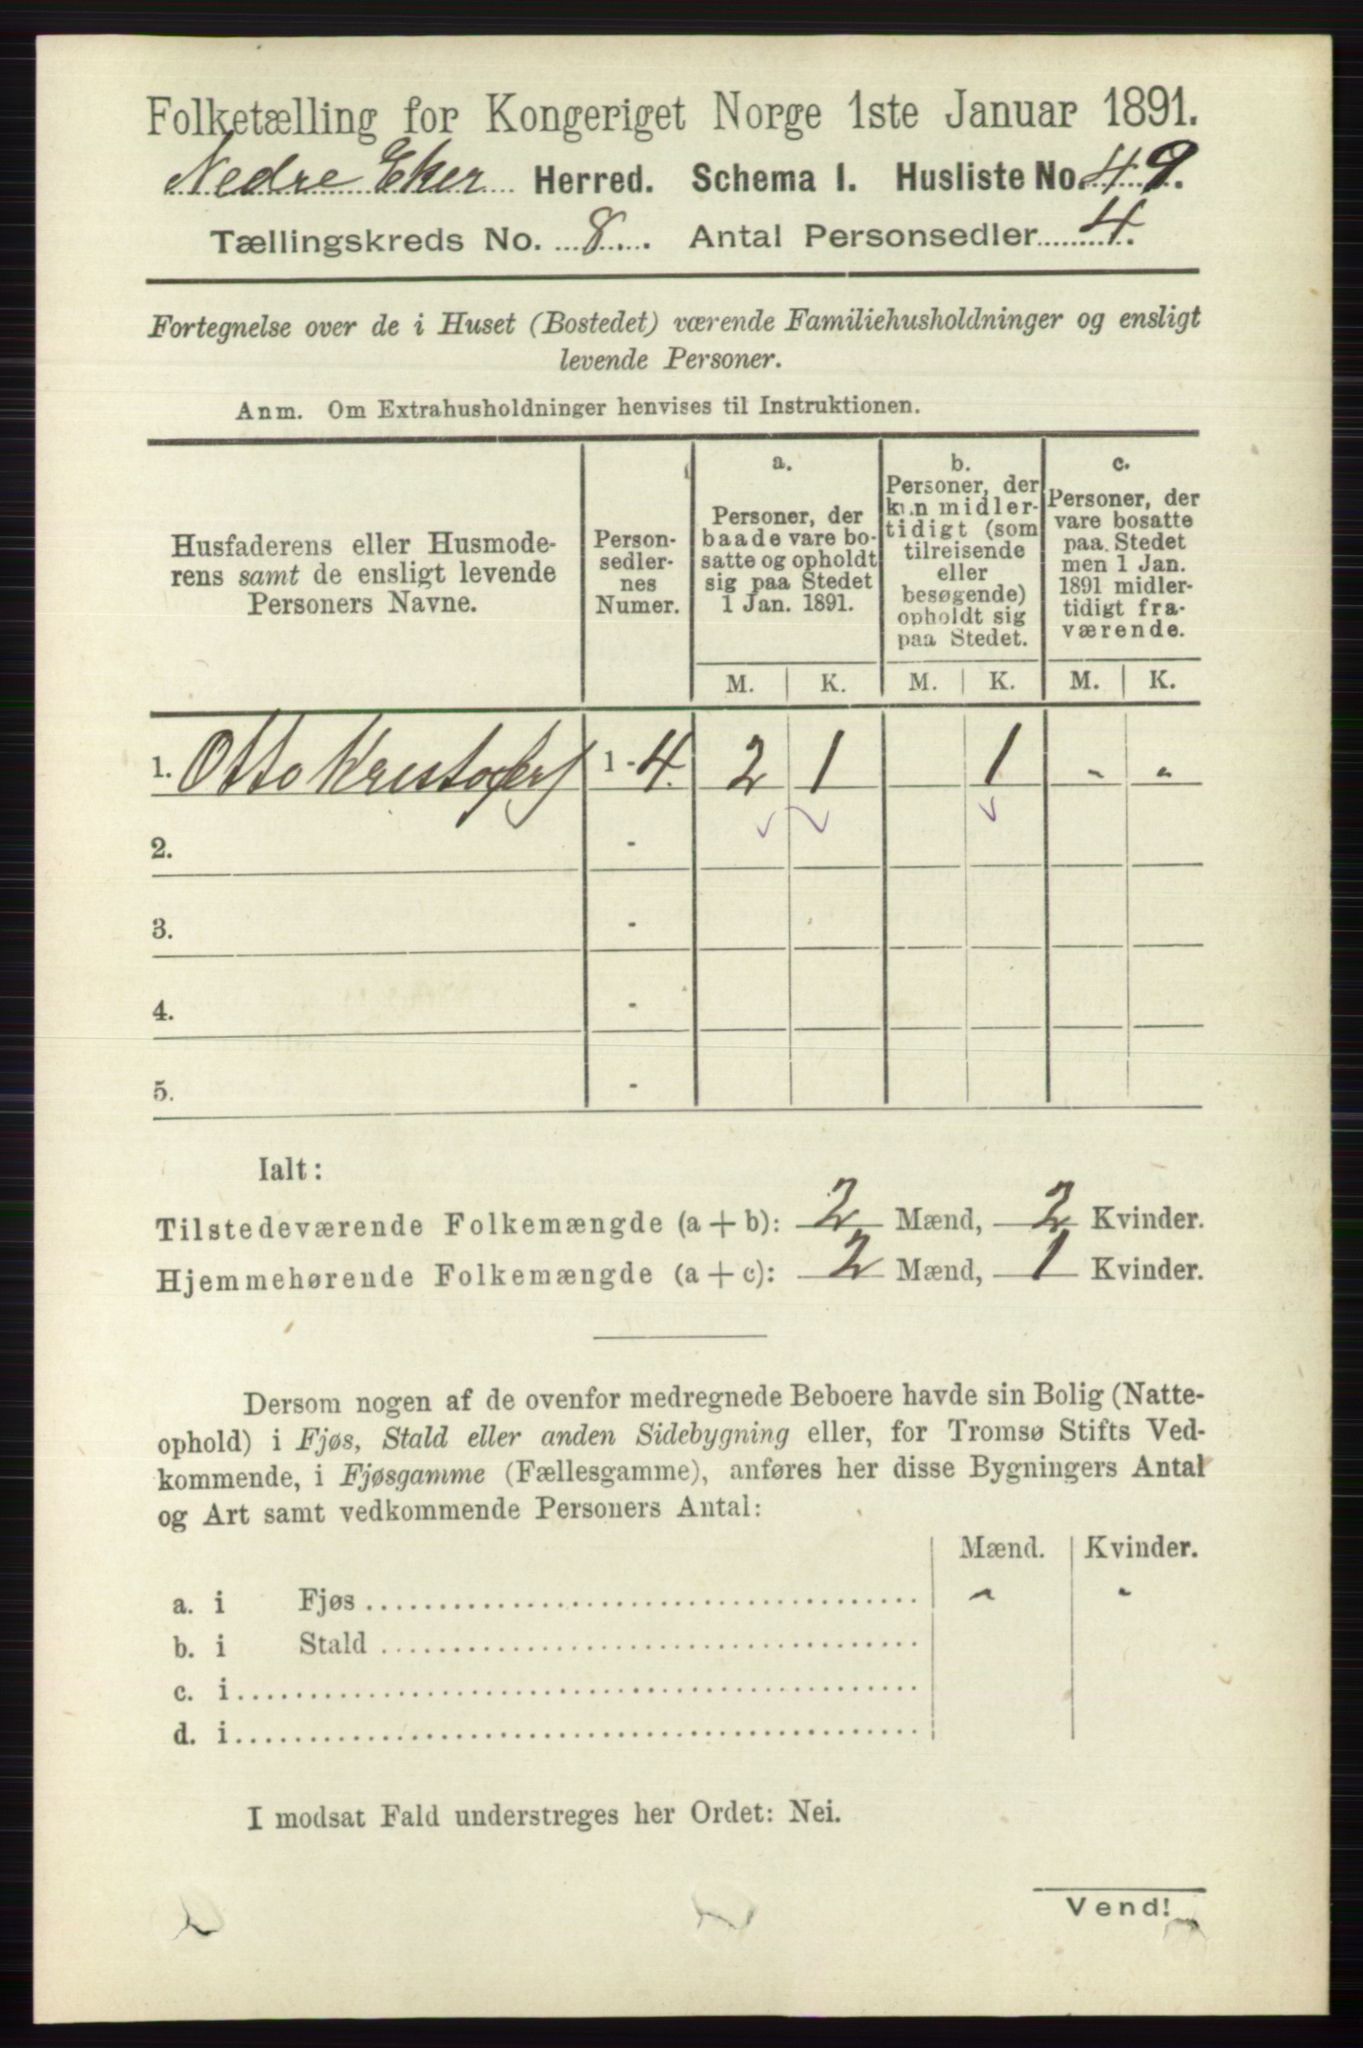 Folketælling for Kongeriget Norge 1ste Januar 1891.
Nedre Eker Herred. Schema I. Husliste No. 49.
Tællingskreds No. 8. Antal Personsedler 4.
Fortegnelse over de i Huset (Bostedet) værende Familiehusholdninger og ensligt
levende Personer.
Anm. Om Extrahusholdninger henvises til Instruktionen.
Husfaderens eller Husmode-
rens samt de ensligt levende
Personers Navne.
Person-
sedler-
nes
Numer.
a.
Personer, der
baade vare bo-
satte og opholdt
sig paa Stedet
1 Jan. 1891.
b.
Personer, der
kun midler-
tidigt (som
tilreisende
eller
besøgende)
opholdt sig
paa Stedet.
c.
Personer, der
vare bosatte
paa Stedet
men 1 Jan.
1891 midler-
tidigt fra-
værende.
M. K. M. K. M. K.
1. Otto Kristofers 1 - 4. 2 1 1 - -
2. -
3. -
4. -
5. -
Ialt:
Tilstedeværende Folkemængde (a + b): 2 Mænd, 2 Kvinder.
Hjemmehørende Folkemængde (a + c): 2 Mænd, 1 Kvinder.
Dersom nogen af de ovenfor medregnede Beboere havde sin Bolig (Natte-
ophold) i Fjøs, Stald eller anden Sidebygning eller, for Tromsø Stifts Ved-
kommende, i Fjøsgamme (Fællesgamme), anføres her disse Bygningers Antal
og Art samt vedkommende Personers Antal:
Mænd. Kvinder.
a. i Fjøs - -
b. i Stald
c. i
d. i
I modsat Fald understreges her Ordet: Nei.
Vend!